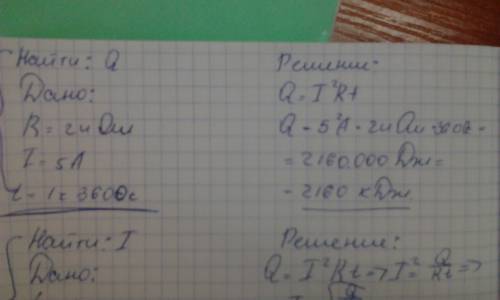 Найти: Q
Дано:
R = 24 Ом
I = 5А
t = 1ч 3600с
Решение:
Q = I²Rt
Q = 5²А · 24 Ом · 3600с =
= 2160.000 Дж =
= 2160 кДж
Найти: I
Дано:
Решение:
Q = I²Rt => I² = Q/Rt =>